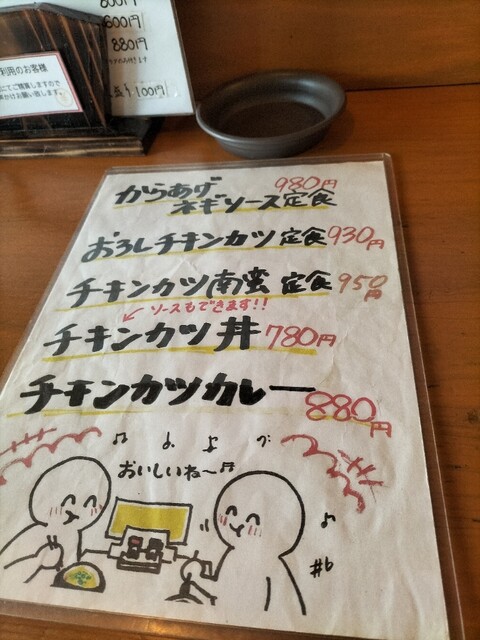 600円
880円
利用のお客様
にてご精算しますので
からあげ 980円
ネギソース定食
おろしチキンカツ 定食 930円
チキンカツ南蛮 定食 950円
ソースもできます!!
チキンカツ丼 780円
チキンカツカレー
880円
おいしいね〜♬